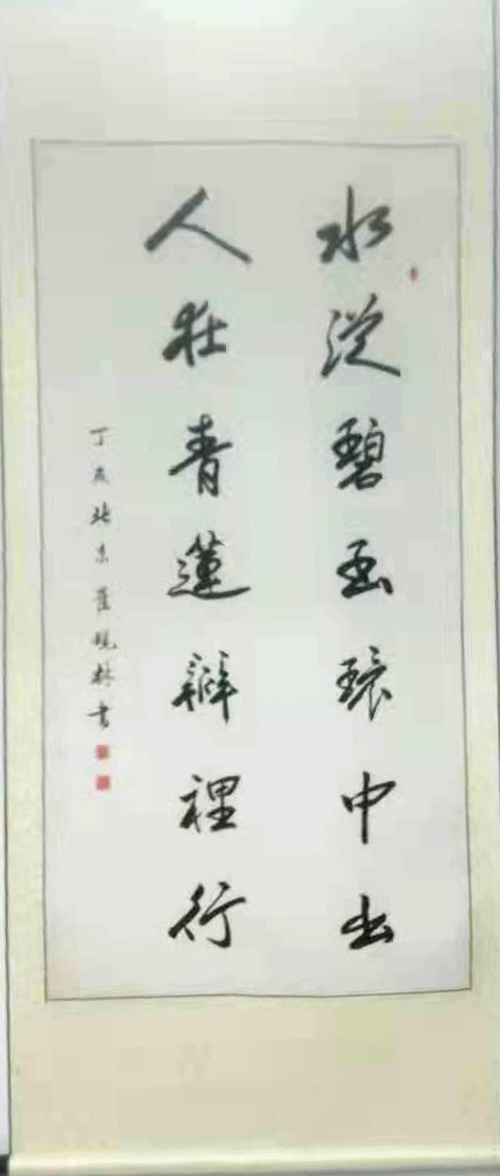 水從碧玉環中出
人在青蓮瓣裡行
丁亥北京崔林书